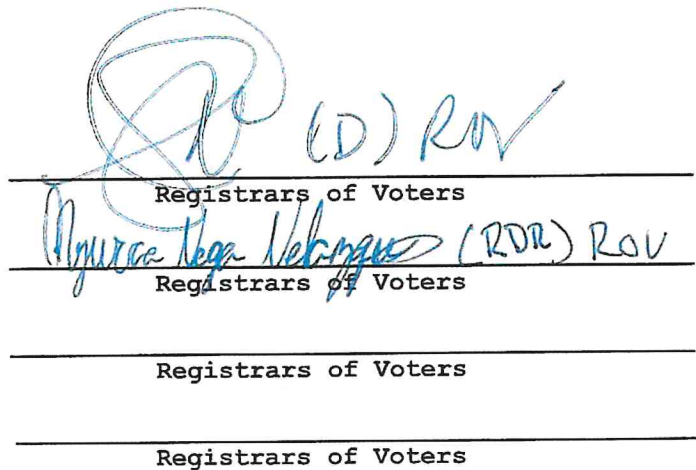 (D) ROV
Registrars of Voters
Vega (RDR) ROV
Registrars of Voters
Registrars of Voters
Registrars of Voters